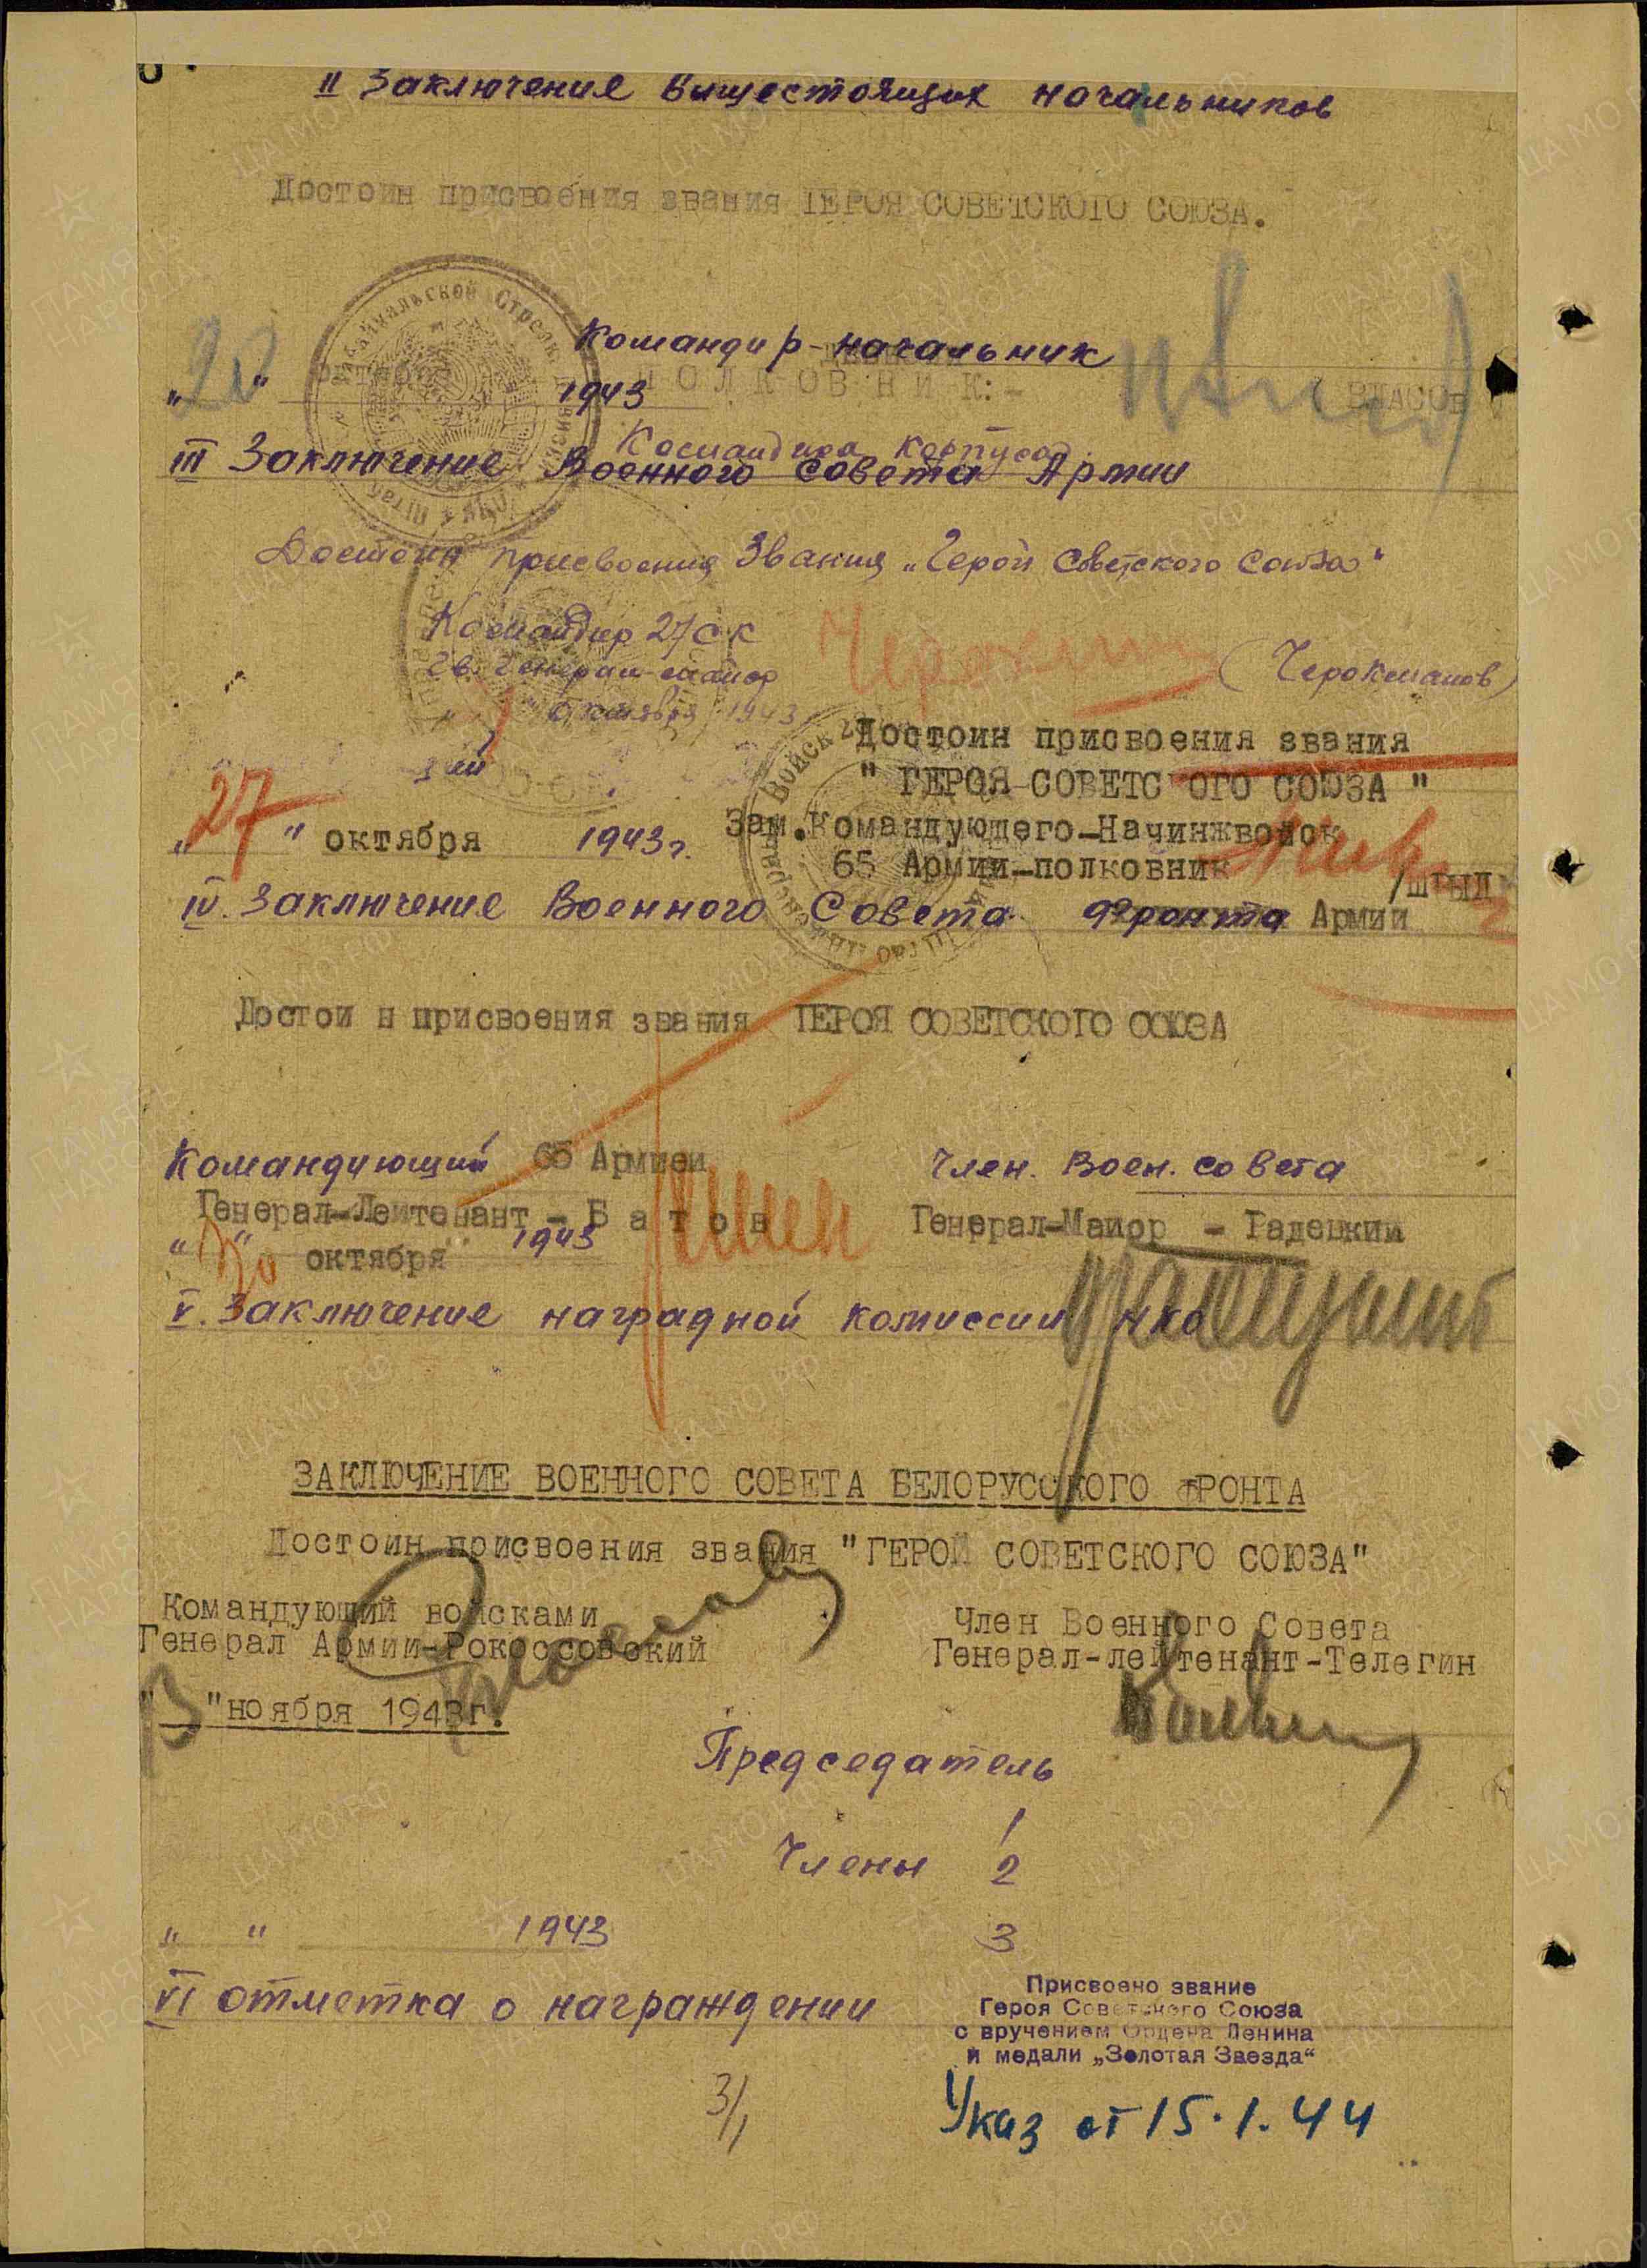 II Заключение вышестоящих начальников
Достоин присвоения звания ГЕРОЯ СОВЕТСКОГО СОЮЗА.
Командир-начальник
"20" октября 1943 ПОЛКОВНИК:- ВЛАСОВ
Командира корпуса
III Заключение Военного Совета Армии
Достоин присвоения Звания „Герой Советского Союза"
Командир 27 СК
Гв. генерал-майор (Черокманов)
октября 1943
Достоин присвоения звания
" ГЕРОЯ СОВЕТС ОГО СОЮЗА "
Зам.Командующего-Начинжвойск
"27" октября 1943 г.
65 Армии-полковник
IV. Заключение Военного Совета фронта Армии
Достои н присвоения звания ГЕРОЯ СОВЕТСКОГО СОЮЗА
Командующий 65 Армией Член. Воен. совета
Генерал-Лейтенант - Б а т о в Генерал-Майор - Радецкий
"30" октября 1943
V. Заключение наградной комиссии НКО
ЗАКЛЮЧЕНИЕ ВОЕННОГО СОВЕТА БЕЛОРУССКОГО ФРОНТА
Достоин присвоения звания "ГЕРОЙ СОВЕТСКОГО СОЮЗА"
Командующий войсками Член Военного Совета
Генерал Армии-Рокоссовский Генерал-лейтенант-Телегин
"13"ноября 1943г.
Председатель
1
Члены 2
" " 1943 3
VI отметка о награждении
Присвоено звание
Героя Советского Союза
с вручением Ордена Ленина
и медали „Золотая Звезда"
3/1
Указ от 15.1.44